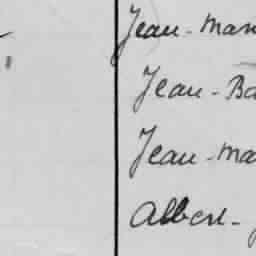 Jean-Mar
Jean-Ba
Jean-Ma
Albert-